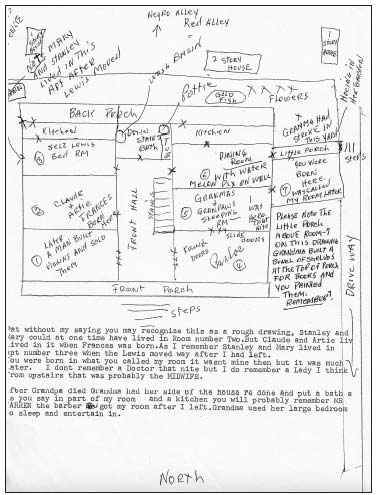 Negro Alley
Red Alley
MARY
and Stanley
Lived in This
Apt After
Lewis Moved
WASH BASIN
2 STORY
HOUSE
1
STORY
HOUSE
BARN
Pottie
Gold
Fish
FLOWERS
Hoeing in
Her Garden
BACK PORCH
GRANMA HAD
STROKE IN
THIS YARD
Kitchen
DOWN STAIRS
Kitchen
LITTLE PORCH
steps
SELZ LEWIS
Bed RM
DINING
ROOM
6 WITH WATER
MELON PIX ON WALL
YOU WERE
BORN
HERE,
WAS CALLED
MY ROOM LATER
7
2
CLAUDE
ARTIE
FRANCES
BORN
HERE
FRONT HALL
STAIRS
5
GRANMAS
& GRANPAWS
SLEEPING
RM
I
WAS
BORN
HERE
SLIDE
DOORS
1
LATER
A MAN BUILT
VIOLINS AND SOLD
THEM
FRONT
DOORS
Parlor
4
PLEASE NOTE THE
LITTLE PORCH
ABOVE ROOM-7
ON THIS DRAWING
GRANDMA BUILT A
BUNCH OF SHELVES
AT THE TOP OF PORCH
FOR BOOKS AND
YOU PAINTED
THEM.
REMEMBER?
DRIVE WAY
FRONT PORCH
steps
without my saying you may recognize this as a rough drawing, Stanley and
Mary could at one time have lived in Room number Two.But Claude and Artie liv
lived in it when Frances was born.As I remember Stanley and Mary lived in
apt number three when the Lewis moved way after I had left.
You were born in what you called my room it wasnt mine then but it was much
later. I dont remember a Doctor that nite but I do remember a Lady I think
from upstairs that was probably the MIDWIFE.
After Grandpa died Granma had her side of the house re done and put a bath a
as you say in part of my room and a kitchen you will probably remember MR
WARREN the barber got my room after I left.Grandma used her large bedroom
to sleep and entertain in.
North